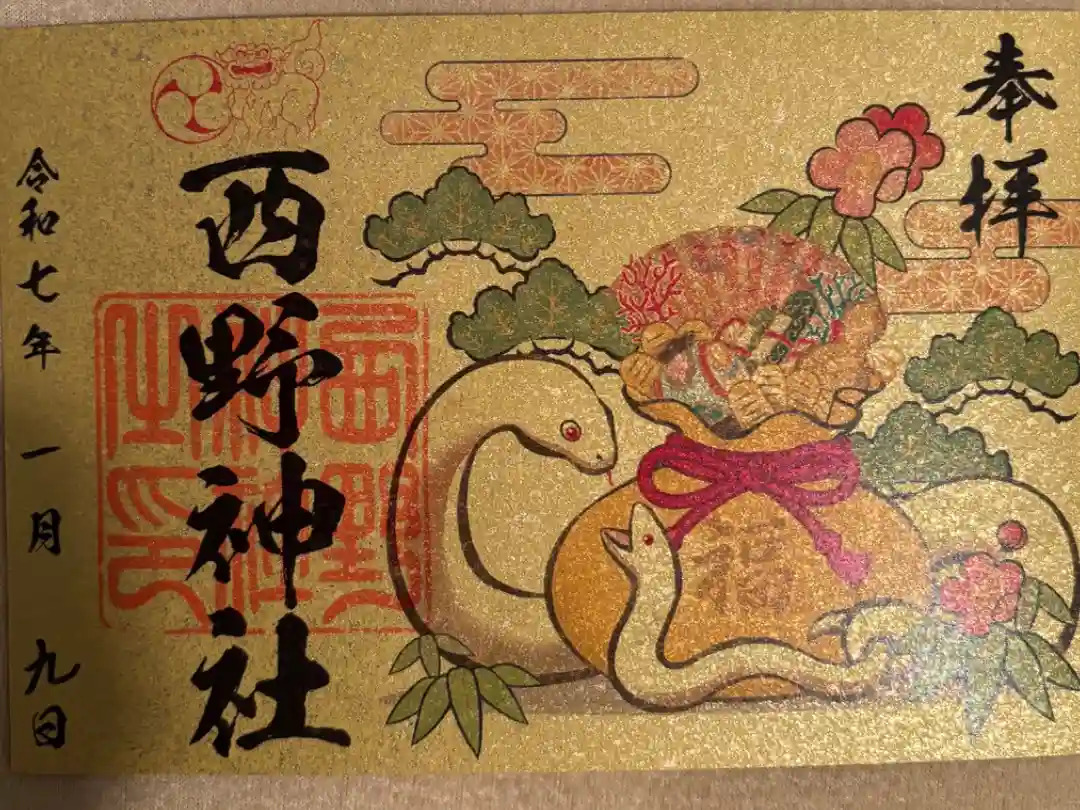 奉拝
西野神社
西野神社之印
福
令和七年一月九日